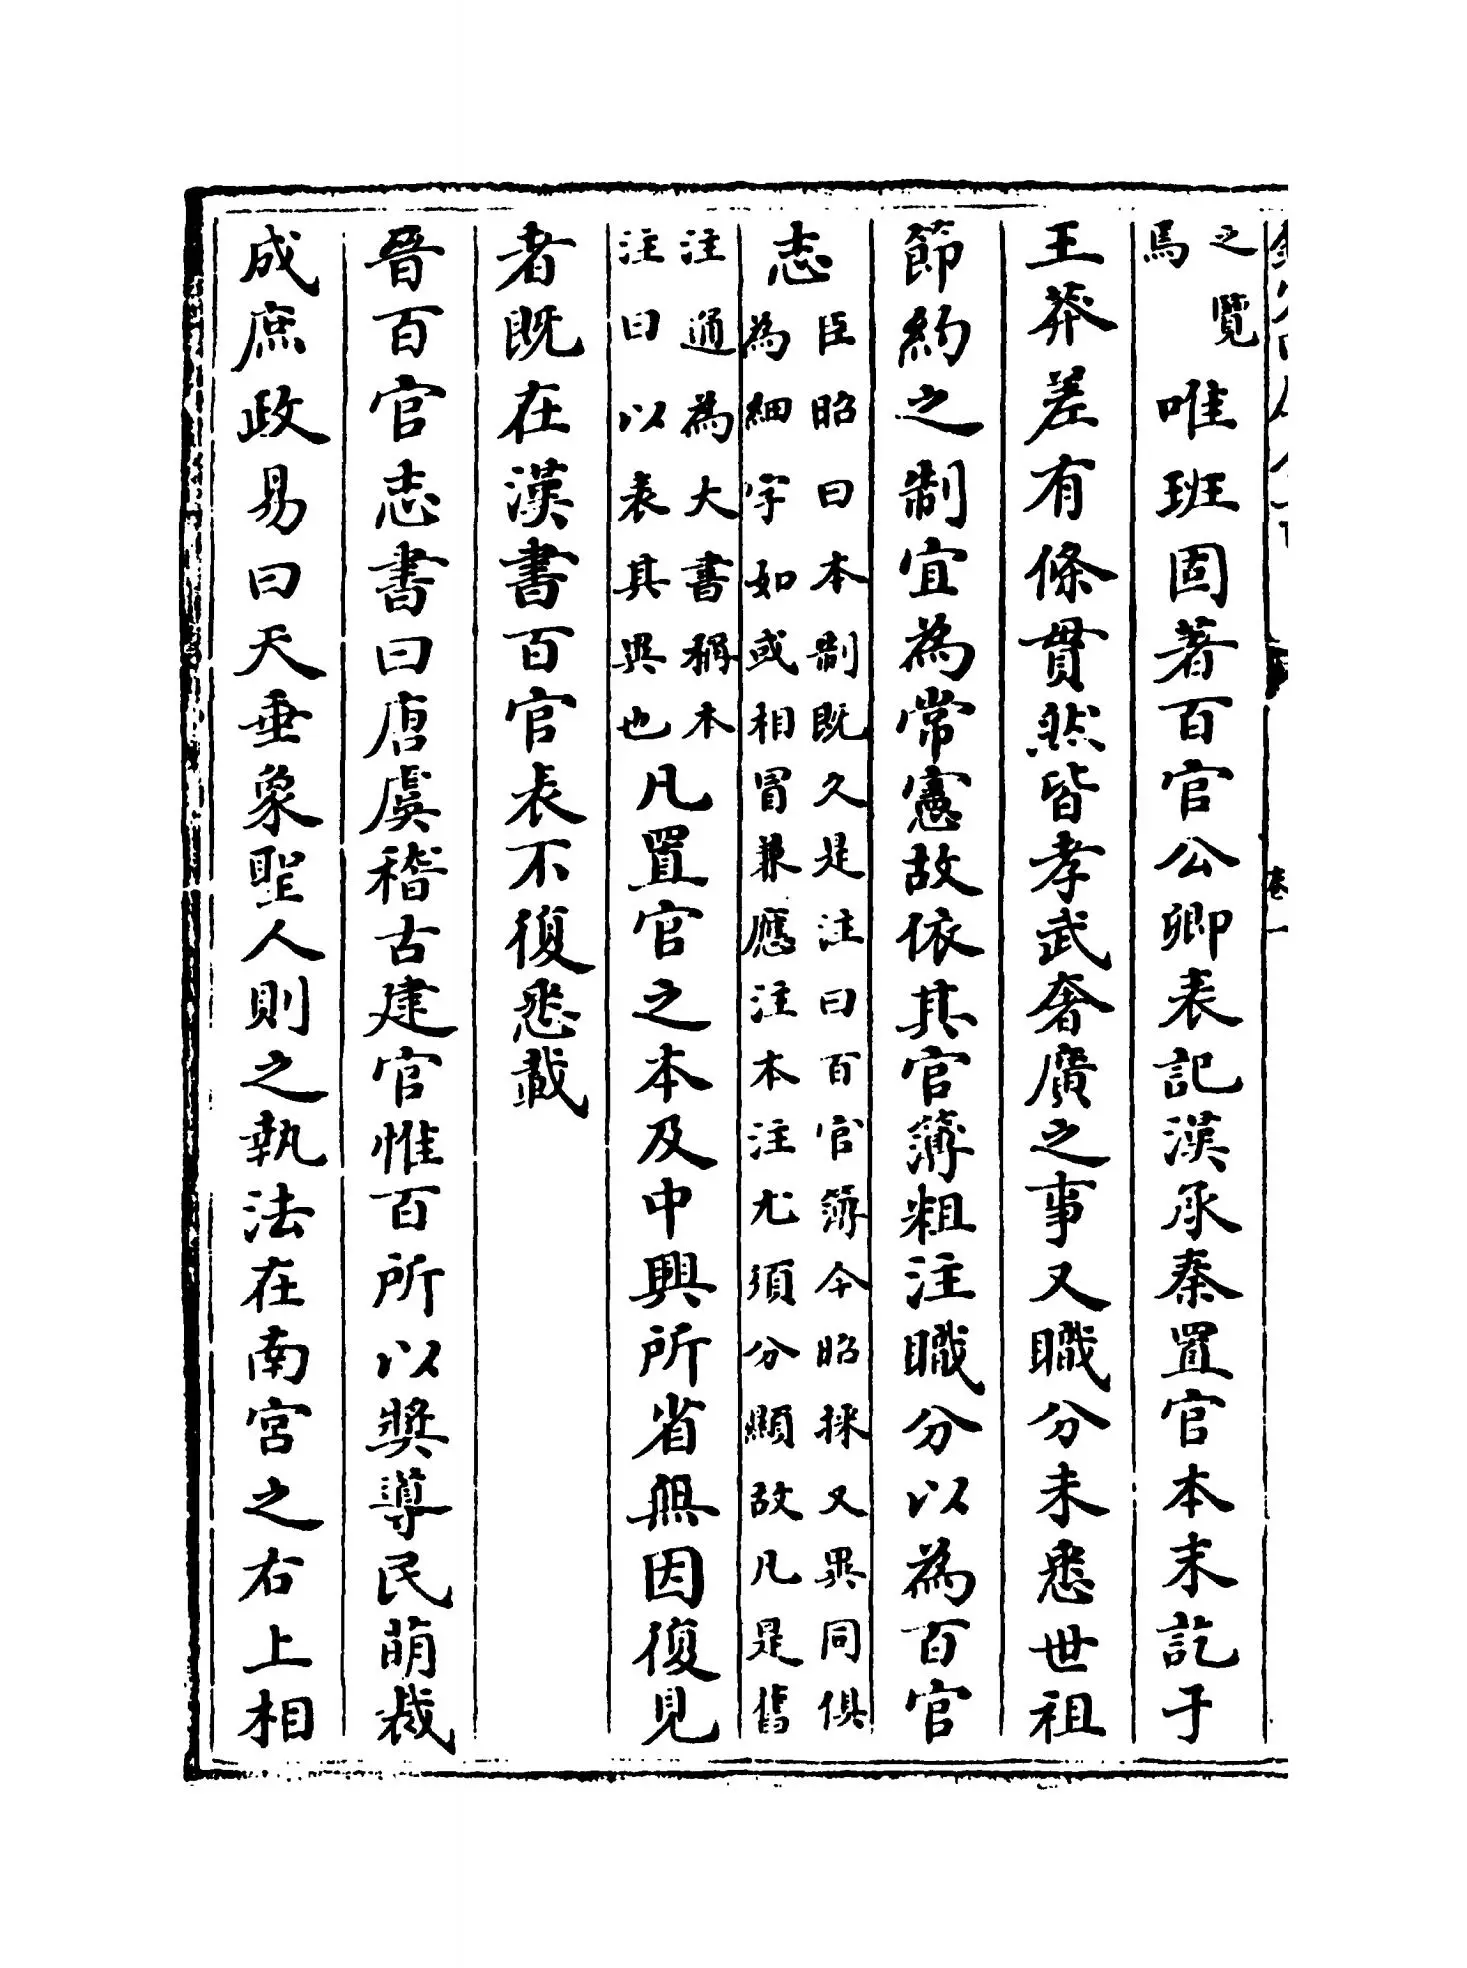 之覽
馬
唯班固著百官公卿表記漢承秦置官本末訖于
王莽差有條貫然皆孝武奢廣之事又職分未悉世祖
節約之制宜為常憲故依其官簿粗注職分以為百官
志
臣昭曰本制既久是注曰百官簿今昭採又異同俱
為細字如或相冒兼應注本注尤須分顯故凡是舊
注通為大書稱本
注曰以表其異也
凡置官之本及中興所省無因復見
者既在漢書百官表不復悉載
晉百官志書曰唐虞稽古建官惟百所以奬導民萌裁
成庶政易曰天垂象聖人則之執法在南宮之右上相
卷一